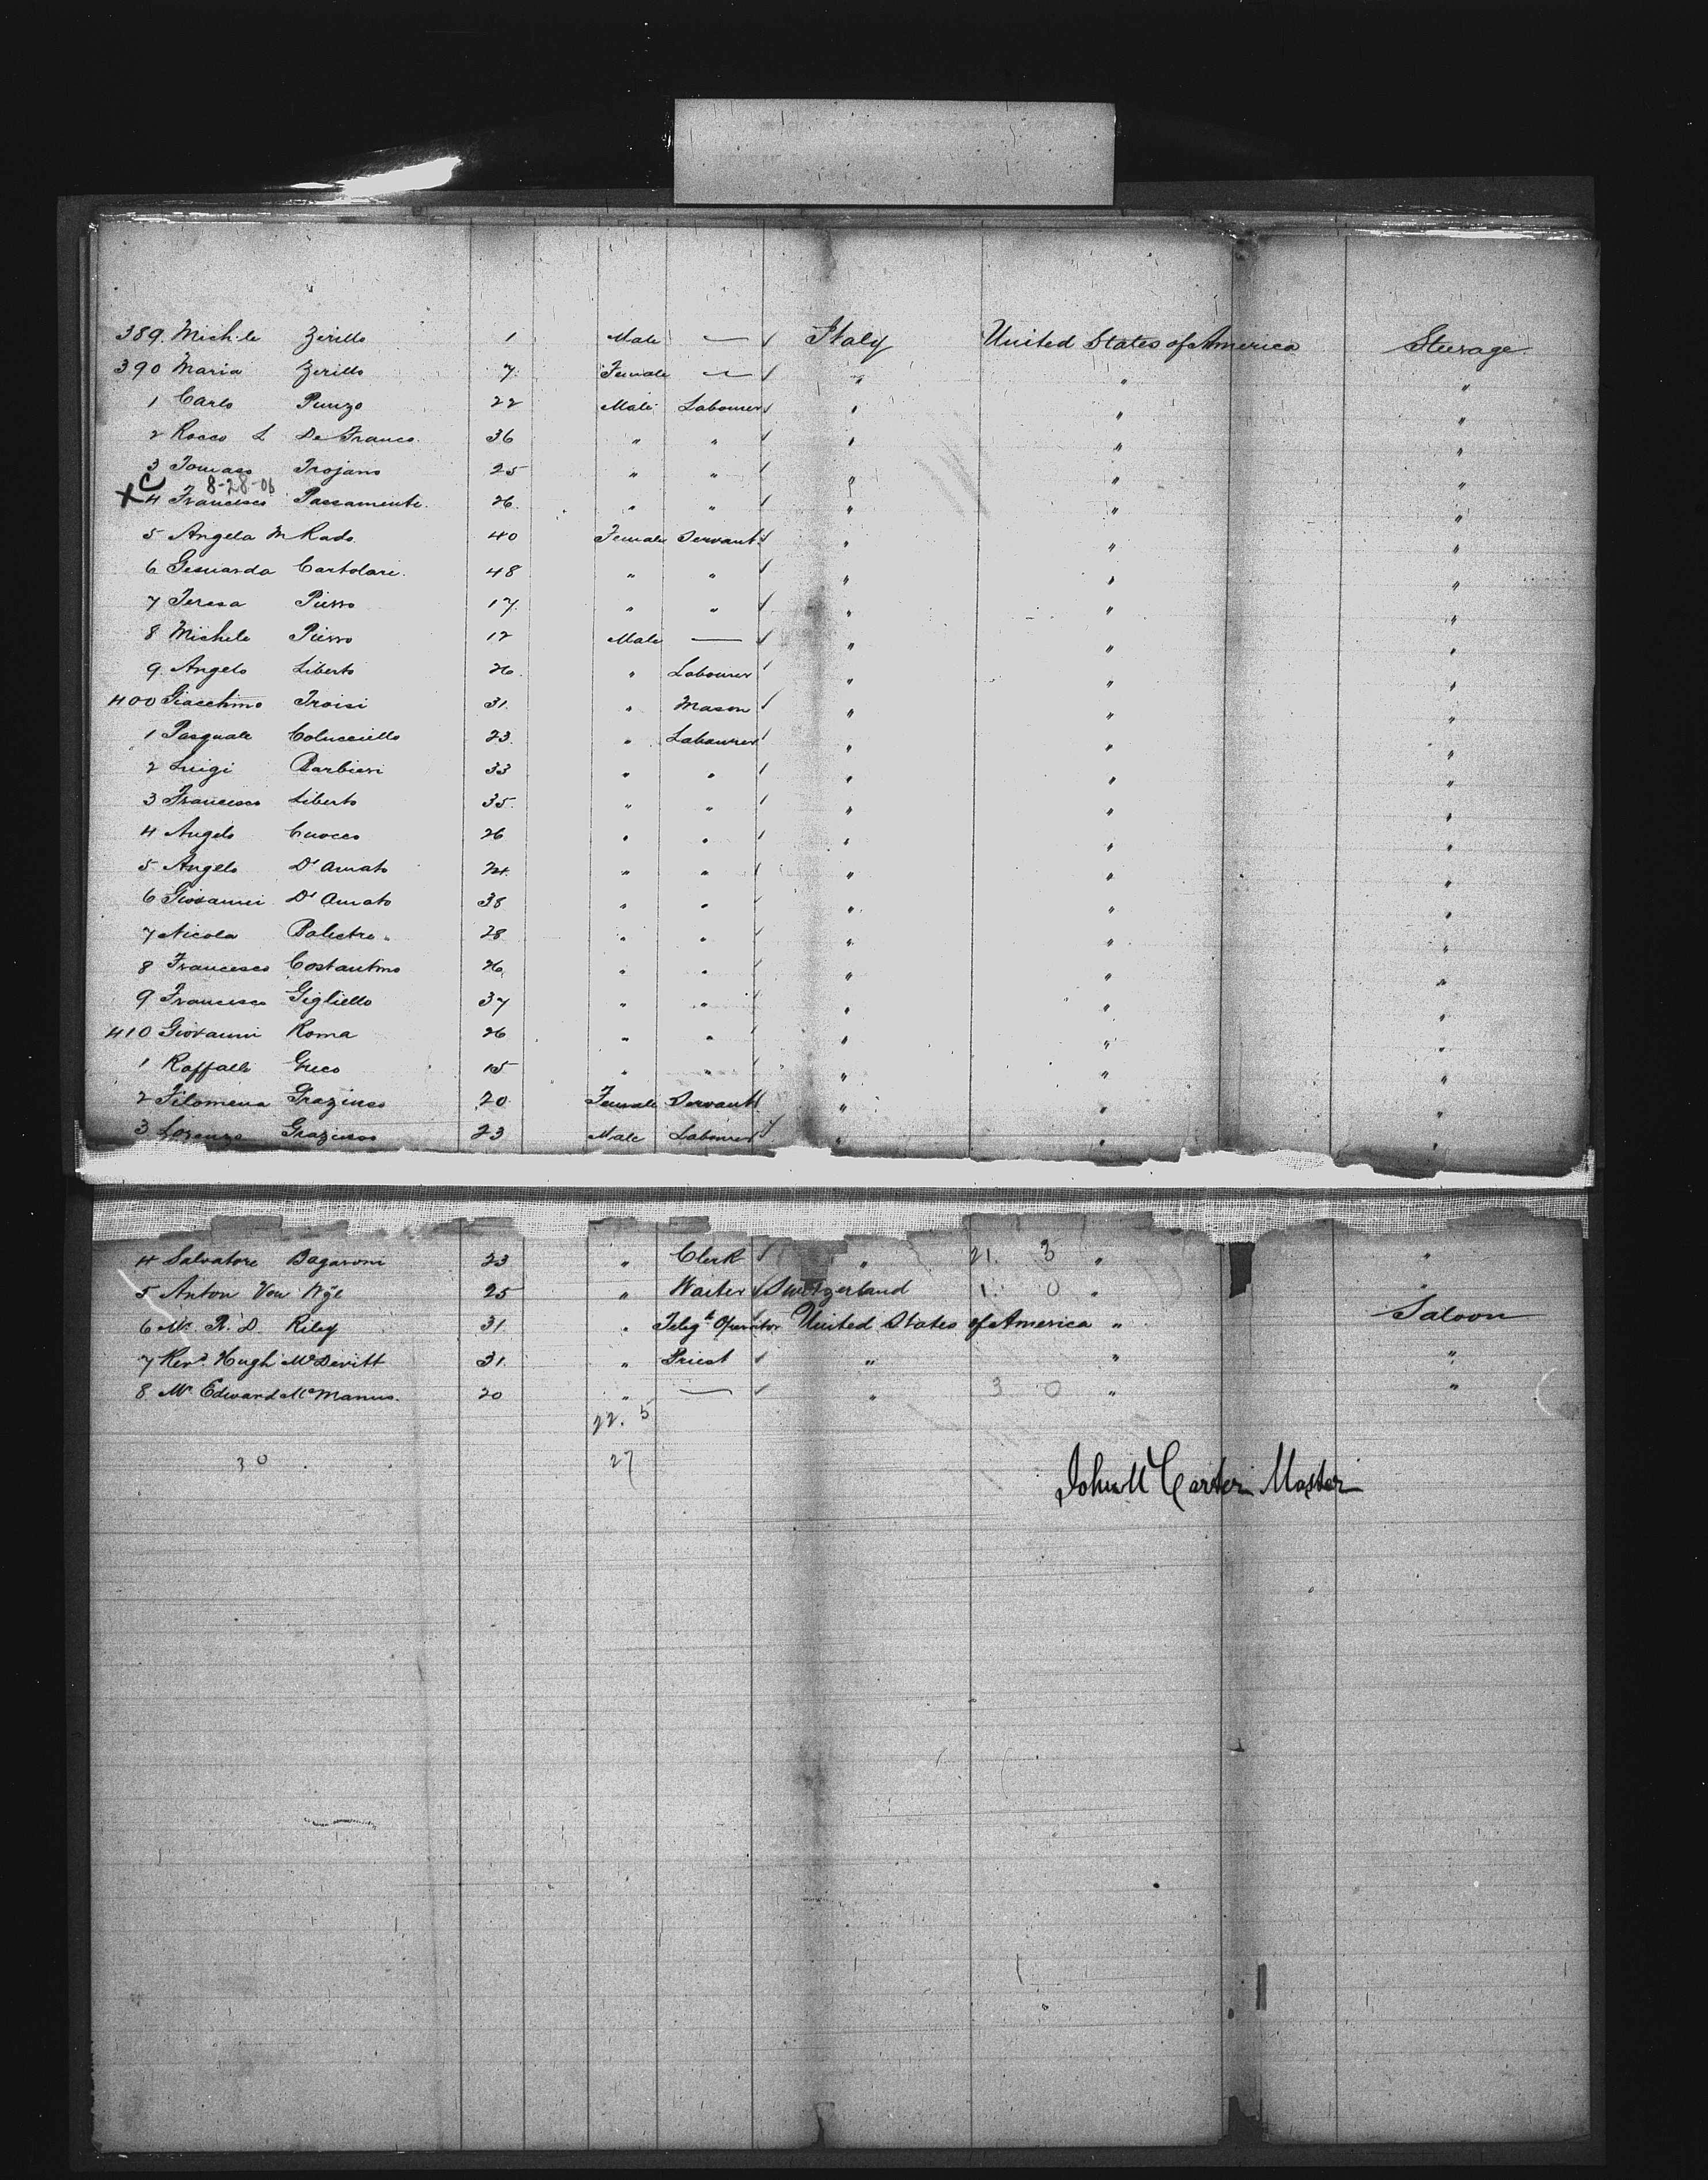 389. Michele Zerillo 1 Male — Italy United States of America Steerage.
390 Maria Zerillo 7 Female — " " "
1 Carlo Punzo 22 Male Labourer " " "
2 Rocco L De Franco. 36 " " " " "
3 Tomaso Trojano 25 " " " " "
X C 8-28-06
4 Francesco Passamente. 26. " " " " "
5 Angela M Rado 40 Female Servant " " "
6 Gesuarda Cartolare. 48 " " " " "
7 Teresa Pierro 17. " " " " "
8 Michele Pierro 12 Male — " " "
9. Angelo Liberto 26. " Labourer " " "
400 Giacchino Troisi 31. " Mason " " "
1 Pasquale Colucciello 23. " Labourer " " "
2 Luigi Barbieri 33 " " " " "
3 Francesco Liberto 35. " " " " "
4 Angelo Cuocco 26 " " " " "
5 Angelo D'Amato 24. " " " " "
6 Giovanni D'Amato 38 " " " " "
7 Nicola 28 " " " " "
8 Francesco Costantino 26. " " " " "
9 Francesco Gigliello 37 " " " " "
410 Giovanni Roma 26 " " " " "
1 Raffaele Greco 15 " " " " "
2 Filomena Graziuso 20 Female Servant " " "
3 Lorenzo Graziuso 23 Male Labourer " " "
4 Salvatore Bagaroni 23 " Clerk " 21. 3 " "
5 Anton Von Wÿl 25 " Waiter Switzerland 1. 0 " "
6 Mr. R. D. Riley 31. " Telegh Operator United States of America " Saloon
7 Revd. Hugh McDevitt 31. " Priest " " "
8. Mr Edward McManus. 20 " — " 3 0 " "
22. 5
30 27
John W Carter Master